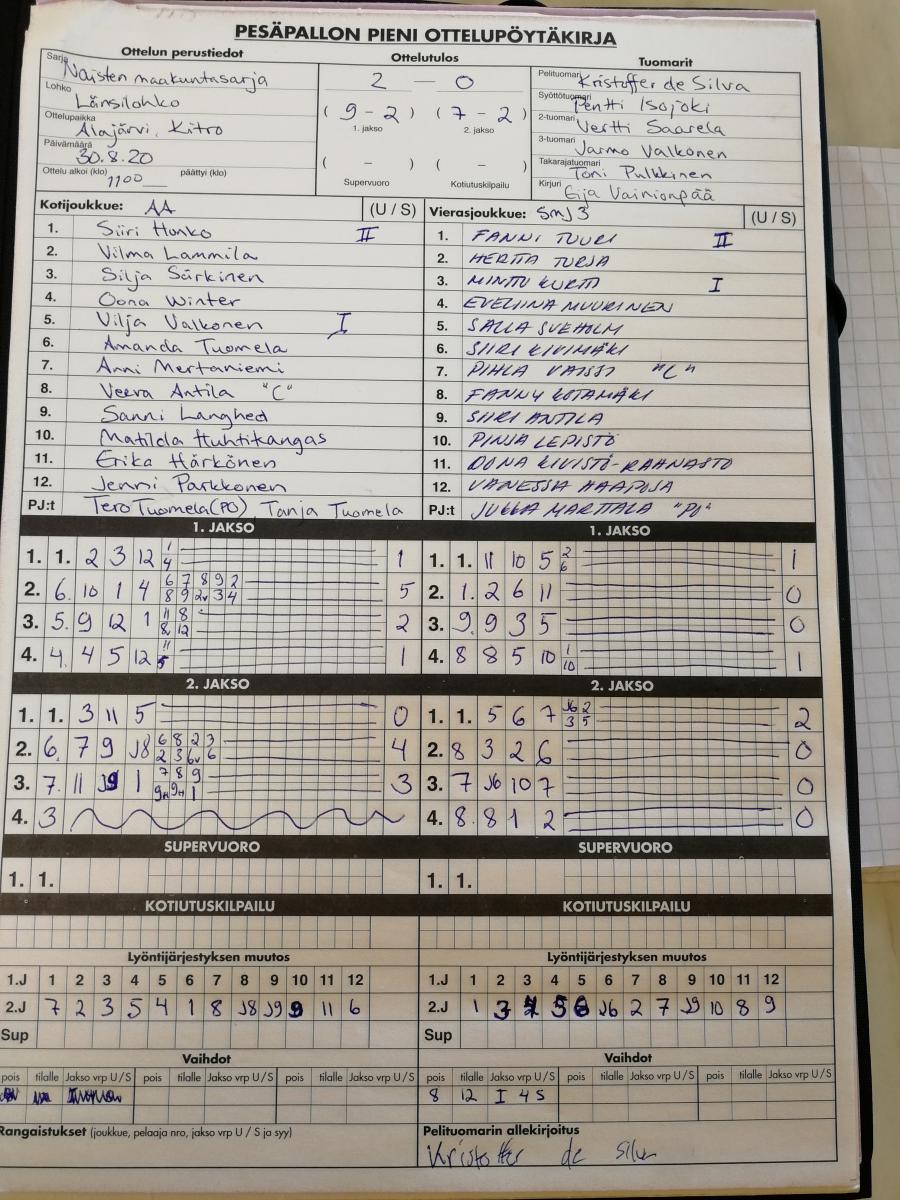 PESÄPALLON PIENI OTTELUPÖYTÄKIRJA
Ottelun perustiedot
Sarja Naisten maakuntasarja
Lohko Länsilohko
Ottelupaikka Alajärvi, Kitro
Päivämäärä 30.8.20
Ottelu alkoi (klo) 1100 päättyi (klo)
Ottelutulos
2 — 0
( 9 - 2 ) ( 7 - 2 )
1. jakso 2. jakso
( - ) ( - )
Supervuoro Kotiutuskilpailu
Tuomarit
Pelituomari Kristoffer de Silva
Syöttötuomari Pentti Isojoki
2-tuomari Vertti Saarela
3-tuomari Jarmo Valkonen
Takarajatuomari Toni Pulkkinen
Kirjuri Eija Vainionpää
Kotijoukkue: AA (U / S)
1. Siiri Honko II
2. Vilma Lammila
3. Silja Särkinen
4. Oona Winter
5. Vilja Valkonen I
6. Amanda Tuomela
7. Anni Mertaniemi
8. Veera Antila "C"
9. Sanni Langhed
10. Matilda Huhtikangas
11. Erika Härkönen
12. Jenni Parkkonen
PJ:t Tero Tuomela (PO) Tanja Tuomela
Vierasjoukkue: SMJ 3 (U / S)
1. FANNI TUURI II
2. HERTTA TURJA
3. MINTTU KURTTI I
4. EVELIINA MUURINEN
5. SALLA SVEHOLM
6. SIIRI KIVIMÄKI
7. PIHLA VAISSI "C"
8. FANNY KOTAMÄKI
9. SIIRI ANTILA
10. PINJA LEPISTÖ
11. OONA KIVISTÖ-RAHNASTO
12. VANESSA HAAPOJA
PJ:t JUKKA MARTTALA "PJ"
1. JAKSO
1. 1. 2 3 12 1/4 1
2. 6. 10 1 4 6/8 7/9 8/2v 9/3 2/4 5
3. 5. 9 12 1 11/8v 8/12 2
4. 4. 4 5 12 11/5 1
1. JAKSO
1. 1. 11 10 5 2/6 1
2. 1. 2 6 11 0
3. 9. 9 3 5 0
4. 8 8 5 10 1/10 1
2. JAKSO
1. 1. 3 11 5 0
2. 6. 7 9 J8 6/2 8/3 2/6v 3/6 4
3. 7. 11 J9 1 7/9H 8/9H 9/1 3
4. 3
2. JAKSO
1. 1. 5 6 7 J6/3 2/5 2
2. 8 3 2 6 0
3. 7 J6 10 7 0
4. 8. 8 1 2 0
SUPERVUORO
1. 1.
SUPERVUORO
1. 1.
KOTIUTUSKILPAILU
KOTIUTUSKILPAILU
Lyöntijärjestyksen muutos
1.J 1 2 3 4 5 6 7 8 9 10 11 12
2.J 7 2 3 5 4 1 8 J8 J9 9 11 6
Sup
Lyöntijärjestyksen muutos
1.J 1 2 3 4 5 6 7 8 9 10 11 12
2.J 1 3 4 5 6 J6 2 7 J9 10 8 9
Sup
Vaihdot
pois tilalle Jakso vrp U / S pois tilalle Jakso vrp U / S pois tilalle Jakso vrp U / S
Vaihdot
pois tilalle Jakso vrp U / S pois tilalle Jakso vrp U / S pois tilalle Jakso vrp U / S
8 12 I 4 S
Rangaistukset (joukkue, pelaaja nro, jakso vrp U / S ja syy)
Pelituomarin allekirjoitus
Kristoffer de Silva